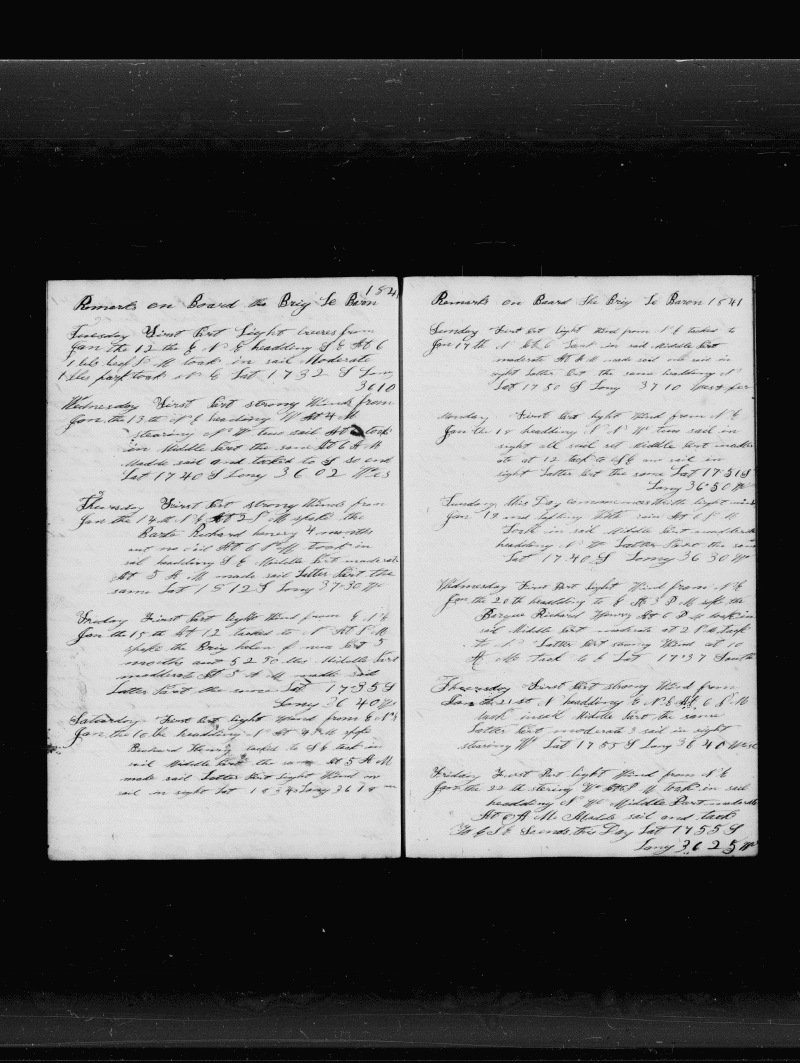 1841
Remarks on Board the Brig Le Barn
Tuesday First Part Light breezes from
Jan the 12 the E N E headding S E At 6
1 bbls beef P M took in sail Moderate
1 bbs pork took N E Lat 17 32 S Long
3610
Wednesday First Part strong Winds from
Jan the 13 th N E heading W At 4 M
stearing N W two sail At took
in Middle Part the same At 6 A M
Madde sail and tacked to S So end
Lat 17 40 S Long 36 02 Wes
Thursday First Part strong Winds from
Jan the 14 th N E At 3 P M spoke the
Bark Richard henery 4 months
out no oil At 6 P M took in
sail headding S E Middle Part moderate
At 5 A M made sail Latter Part the
same Lat 18 12 S Long 37-30 W
Friday First Part light Wind from E N E
Jan the 15 th At 12 tacked to N At P M
spoke the Brig of near Port 3
months out 5 250 bbs Middle Part
moderate At 5 A M madde sail
Latter Part the same Lat 17 35 S
Long 36 40 W
Saturday First Part light Wind from E N E
Jan the 16 the headding N At 4 P M spoke
Richard Henery tacked to S E took in
sail Middle Part the same At 5 A M
made sail Latter Part light Wind on
sail in sight Lat 18 34 Long 36
Remarks on Board The Brig Le Baron 1841
Sunday First Part light Wind from N E tacked to
Jan 17 th N At 6 took in sail Middle Part
moderate At A M made sail one sail in
sight Latter Part the same headding N
Lat 17 50 S Long 37 10 West
Monday First Part light Wind from N E
Jan the 18 headding N N W two sail in
sight all sail set Middle Part moder
ate at 12 tack to S E on sail in
sight Latter Part the same Lat 17 51 S
Long 36 50 W
Sunday This Day commences With light winds
Jan 19 and With rain At 6 P M
Took in sail Middle Part moderate
headding N W Latter Part the same
Lat 17 40 S Long 36 30 W
Wednesday First Part light Wind from N E
Jan the 20 th headding to E At 3 P M spk the
Barque Richard Henery At 6 P M took in
sail Middle Part moderate at 2 P M Tack
To N Latter Part Wind at 10
A M Tack to E Lat 17 37 South
Thursday First Part strong Wind from
Jan th 21 st N headding E N E At 6 P M
took insail Middle Part the same
Latter Part moderate 3 sail in sight
stearing W Lat 17 55 S Long 36 40 West
Friday First Part light Wind from N E
Jan the 22 th stering W At 6 P M took in sail
headding N W Middle Part moderate
At 5 A M Madde sail and tack
To E S E So ends this Day Lat 17 55 S
Long 36 25 W